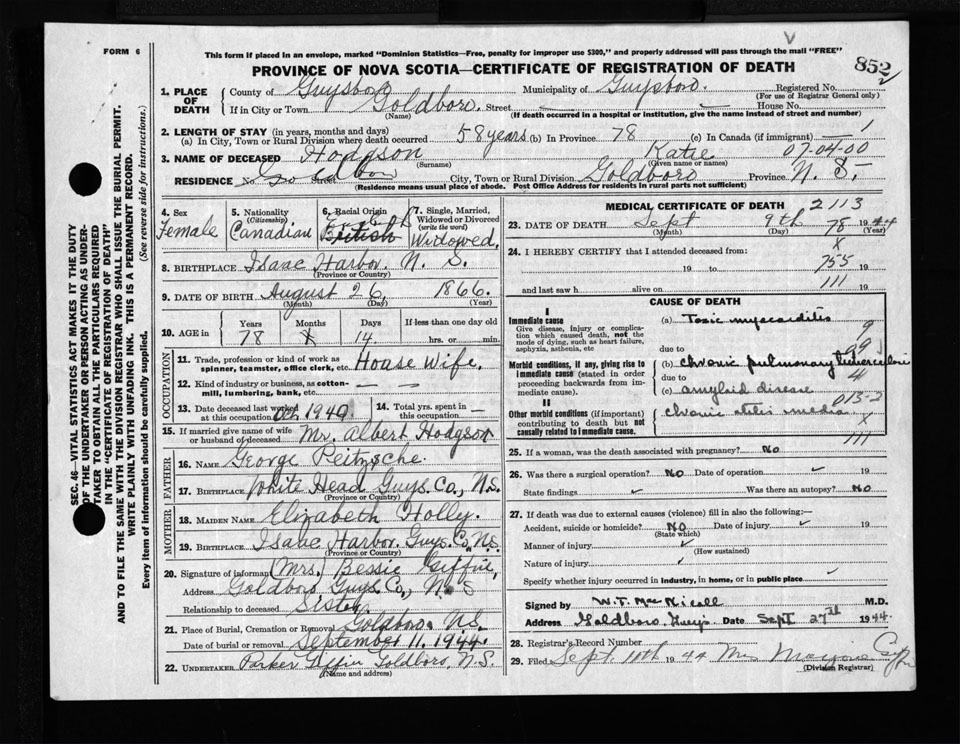 FORM 6
This form if placed in an envelope, marked "Dominion Statistics—Free, penalty for improper use $300," and properly addressed will pass through the mail "FREE"
PROVINCE OF NOVA SCOTIA—CERTIFICATE OF REGISTRATION OF DEATH
852
1. PLACE OF DEATH County of Guysboro Municipality of Guysboro. Registered No.
(For use of Registrar General only)
If in City or Town Goldboro. Street — House No. —
(Name) (If death occurred in a hospital or institution, give the name instead of street and number)
2. LENGTH OF STAY (in years, months and days)
(a) In City, Town or Rural Division where death occurred 58 years (b) In Province 78 (c) In Canada (if immigrant) — 1
3. NAME OF DECEASED Hodgson Katie 07-04-00
(Surname) (Given name or names)
RESIDENCE No. Street City, Town or Rural Division Goldboro Province N. S.
(Residence means usual place of abode. Post Office Address for residents in rural parts not sufficient)
4. Sex Female
5. Nationality (Citizenship) Canadian
6. Racial Origin British
7. Single, Married, Widowed or Divorced (write the word) Widowed.
8. BIRTHPLACE Isaac Harbor. N. S.
(Province or Country)
9. DATE OF BIRTH August 26, 1866.
(Month) (Day) (Year)
10. AGE in Years Months Days If less than one day old
78 X 14 hrs. or min.
OCCUPATION
11. Trade, profession or kind of work as spinner, teamster, office clerk, etc. House Wife.
12. Kind of industry or business, as cotton-mill, lumbering, bank, etc. — —
13. Date deceased last worked at this occupation 1940
14. Total yrs. spent in this occupation —
15. If married give name of wife or husband of deceased Mr. Albert Hodgson
FATHER
16. NAME George Peitzsche.
17. BIRTHPLACE White Head Guys. Co., N.S.
(Province or Country)
MOTHER
18. MAIDEN NAME Elizabeth Holly.
19. BIRTHPLACE Isaac Harbor. Guys. Co. N.S.
(Province or Country)
20. Signature of informant (Mrs.) Bessie Giffin,
Address Goldboro Guys. Co., N. S
Relationship to deceased Sister.
21. Place of Burial, Cremation or Removal Goldboro. N.S.
Date of burial or removal September 11, 1944.
22. UNDERTAKER Parker Giffin Goldboro, N.S.
(Name and address)
MEDICAL CERTIFICATE OF DEATH 2113
23. DATE OF DEATH Sept 9th 78 1944
(Month) (Day) (Year)
24. I HEREBY CERTIFY that I attended deceased from: X
19 to 755 19
and last saw h alive on 111 19
CAUSE OF DEATH
I
Immediate cause (a) Toxic myocarditis
Give disease, injury or complication which caused death, not the mode of dying, such as heart failure, asphyxia, asthenia, etc
due to
Morbid conditions, if any, giving rise to immediate cause (stated in order proceeding backwards from immediate cause).
(b) chronic pulmonary tuberculosis
due to 4
(c) amyloid disease
013-2
II
Other morbid conditions (if important) contributing to death but not causally related to immediate cause.
chronic otitis media X
111
25. If a woman, was the death associated with pregnancy? No
26. Was there a surgical operation? No Date of operation ✓ 19
State findings ✓ Was there an autopsy? No
27. If death was due to external causes (violence) fill in also the following:—
Accident, suicide or homicide? No Date of injury ✓ 19
(State which)
Manner of injury ✓
(How sustained)
Nature of injury ✓
Specify whether injury occurred in industry, in home, or in public place ✓
Signed by W.T. MacNicoll M.D.
Address Goldboro, Guys. Date Sept 27th 1944.
28. Registrar's Record Number
29. Filed Sept 11th 1944 Mrs Marjorie
(Division Registrar)
SEC. 46—VITAL STATISTICS ACT MAKES IT THE DUTY
OF THE UNDERTAKER OR PERSON ACTING AS UNDER-
TAKER TO OBTAIN ALL THE PARTICULARS REQUIRED
IN THE "CERTIFICATE OF REGISTRATION OF DEATH"
AND TO FILE THE SAME WITH THE DIVISION REGISTRAR WHO SHALL ISSUE THE BURIAL PERMIT.
WRITE PLAINLY WITH UNFADING INK. THIS IS A PERMANENT RECORD.
Every item of information should be carefully supplied. (See reverse side for instructions.)